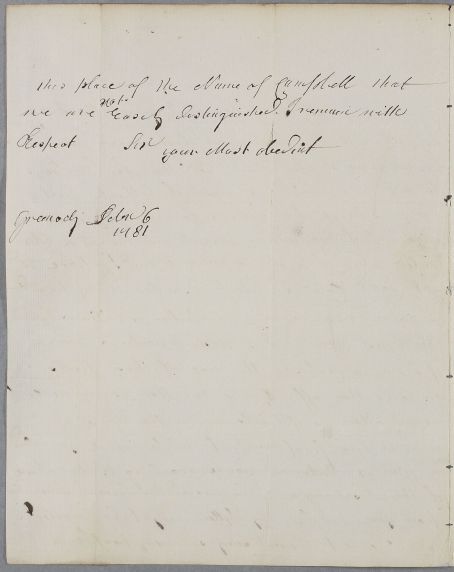 this place of the Name of Campbell that
we are not easely distinguished. I remain with
Respect Sir your Most obedint
Greenock Febr 6
1781